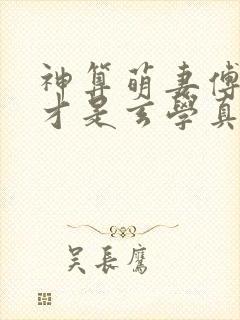 神算萌妻傅
才是玄學真
吴長鷹